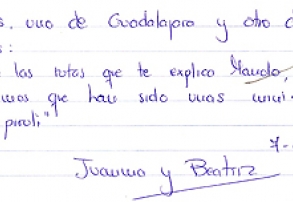 s. uno de Guadalajara y otro d
s:
las rutas que te explico Nando,
mos que han sido unas mini-
piruli"
7-
Juanma y Beatriz